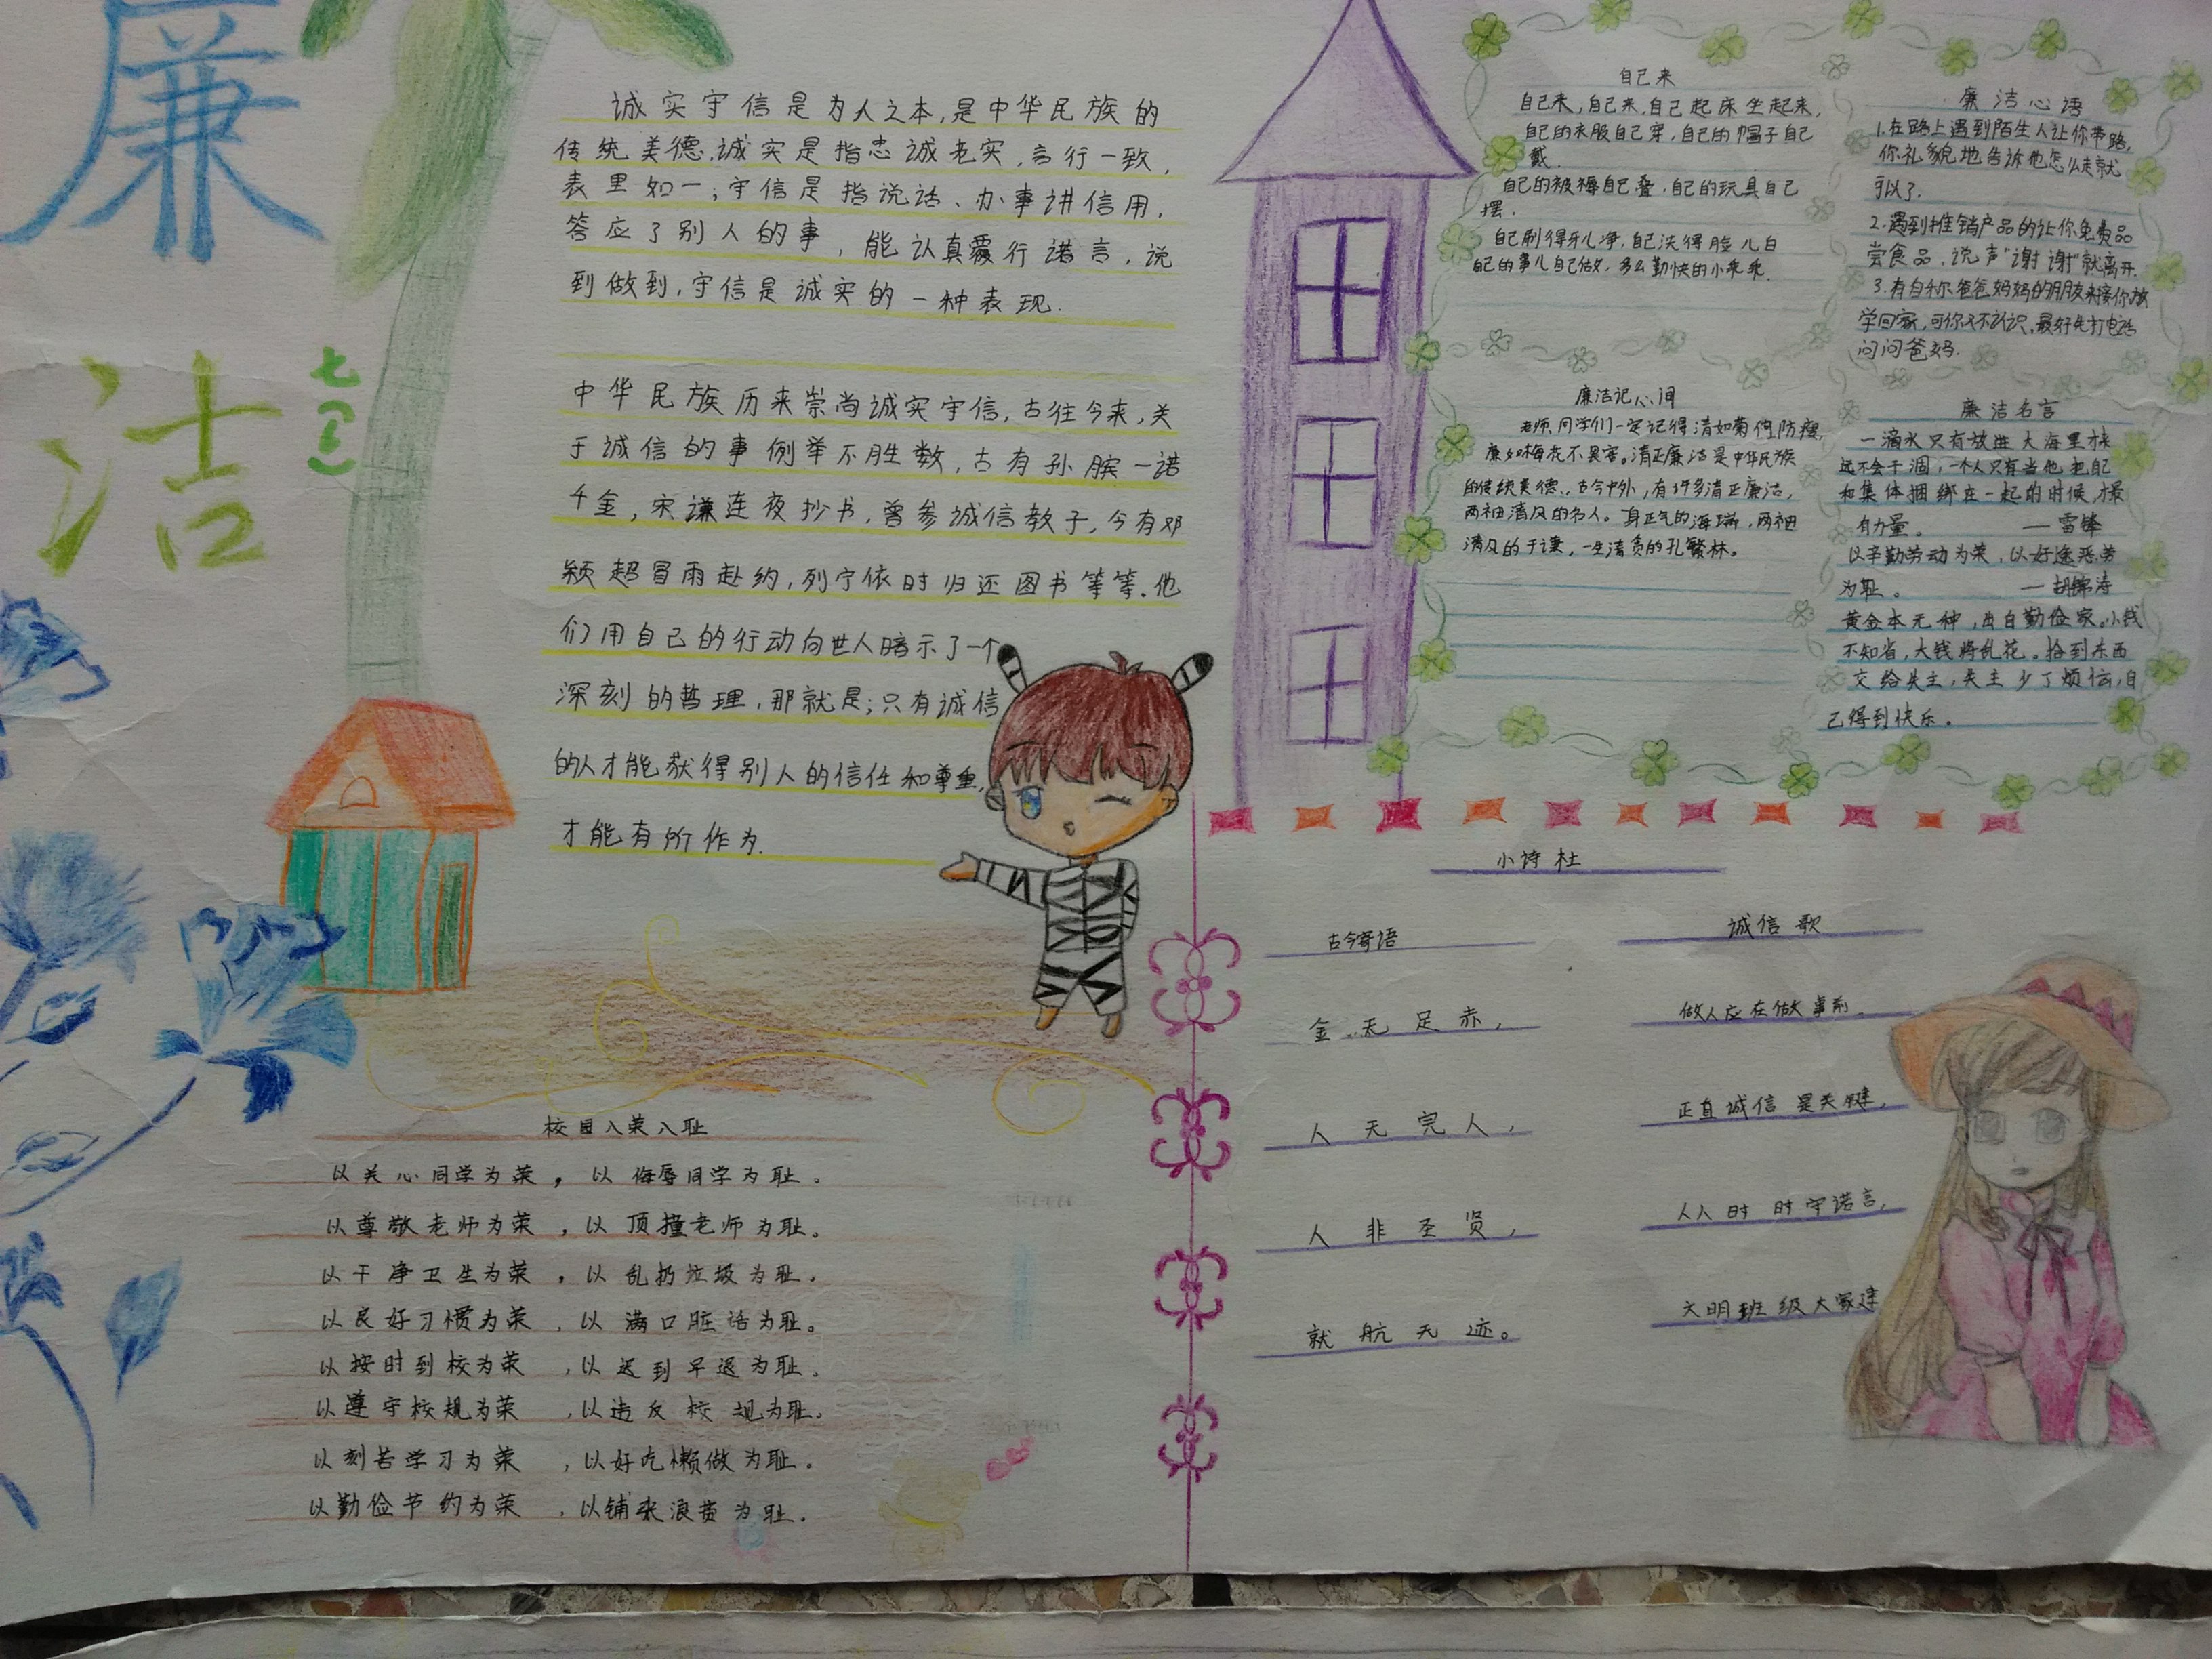 廉
洁
七(一)
诚实守信是为人之本,是中华民族的
传统美德.诚实是指忠诚老实,言行一致,
表里如一;守信是指说话、办事讲信用,
答应了别人的事,能认真履行诺言,说
到做到,守信是诚实的一种表现.
中华民族历来崇尚诚实守信,古往今来,关
于诚信的事例举不胜数,古有孙膑一诺
千金,宋谦连夜抄书,曾参诚信教子,今有邓
颖超冒雨赴约,列宁依时归还图书等等.他
们用自己的行动向世人暗示了一个
深刻的哲理,那就是;只有诚信
的人才能获得别人的信任和尊重,
才能有所作为.
校园八荣八耻
以关心同学为荣,以侮辱同学为耻。
以尊敬老师为荣,以顶撞老师为耻。
以干净卫生为荣,以乱扔垃圾为耻,
以良好习惯为荣,以满口脏话为耻。
以按时到校为荣,以迟到早退为耻。
以遵守校规为荣,以违反校规为耻。
以刻苦学习为荣,以好吃懒做为耻。
以勤俭节约为荣,以铺张浪费为耻。
自己来
自己来,自己来,自己起床坐起来,
自己的衣服自己穿,自己的帽子自己
戴.
自己的被褥自己叠,自己的玩具自己
摆.
自己刷得牙儿净,自己洗得脸儿白
自己的事儿自己做,多么勤快的小乖乖.
廉洁心语
1.在路上遇到陌生人让你带路,
你礼貌地告诉他怎么走就
可以了.
2.遇到推销产品的让你免费品
尝食品,说声"谢谢"就离开.
3.有自称爸爸妈妈的朋友来接你放
学回家,可你又不认识,最好先打电话
问问爸妈.
廉洁记心间
老师,同学们一定记得清如菊何防瘦,
廉如梅花不畏寒。清正廉洁是中华民族
的传统美德,古今中外,有许多清正廉洁,
两袖清风的名人。身正气的海瑞,两袖
清风的于谦,一生清贫的孔繁林。
廉洁名言
一滴水只有放进大海里才永
远不会干涸,一个人只有当他把自己
和集体捆绑在一起的时候,才最
有力量。 —雷锋
以辛勤劳动为荣,以好逸恶劳
为耻。 —胡锦涛
黄金本无种,出自勤俭家。小钱
不知省,大钱将乱花。拾到东西
交给失主,失主少了烦恼,自
己得到快乐。
小诗杜
古今寄语
金无足赤,
人无完人,
人非圣贤,
就航无迹。
诚信歌
做人应在做事前。
正直诚信是关键,
人人时时守诺言,
文明班级大家建